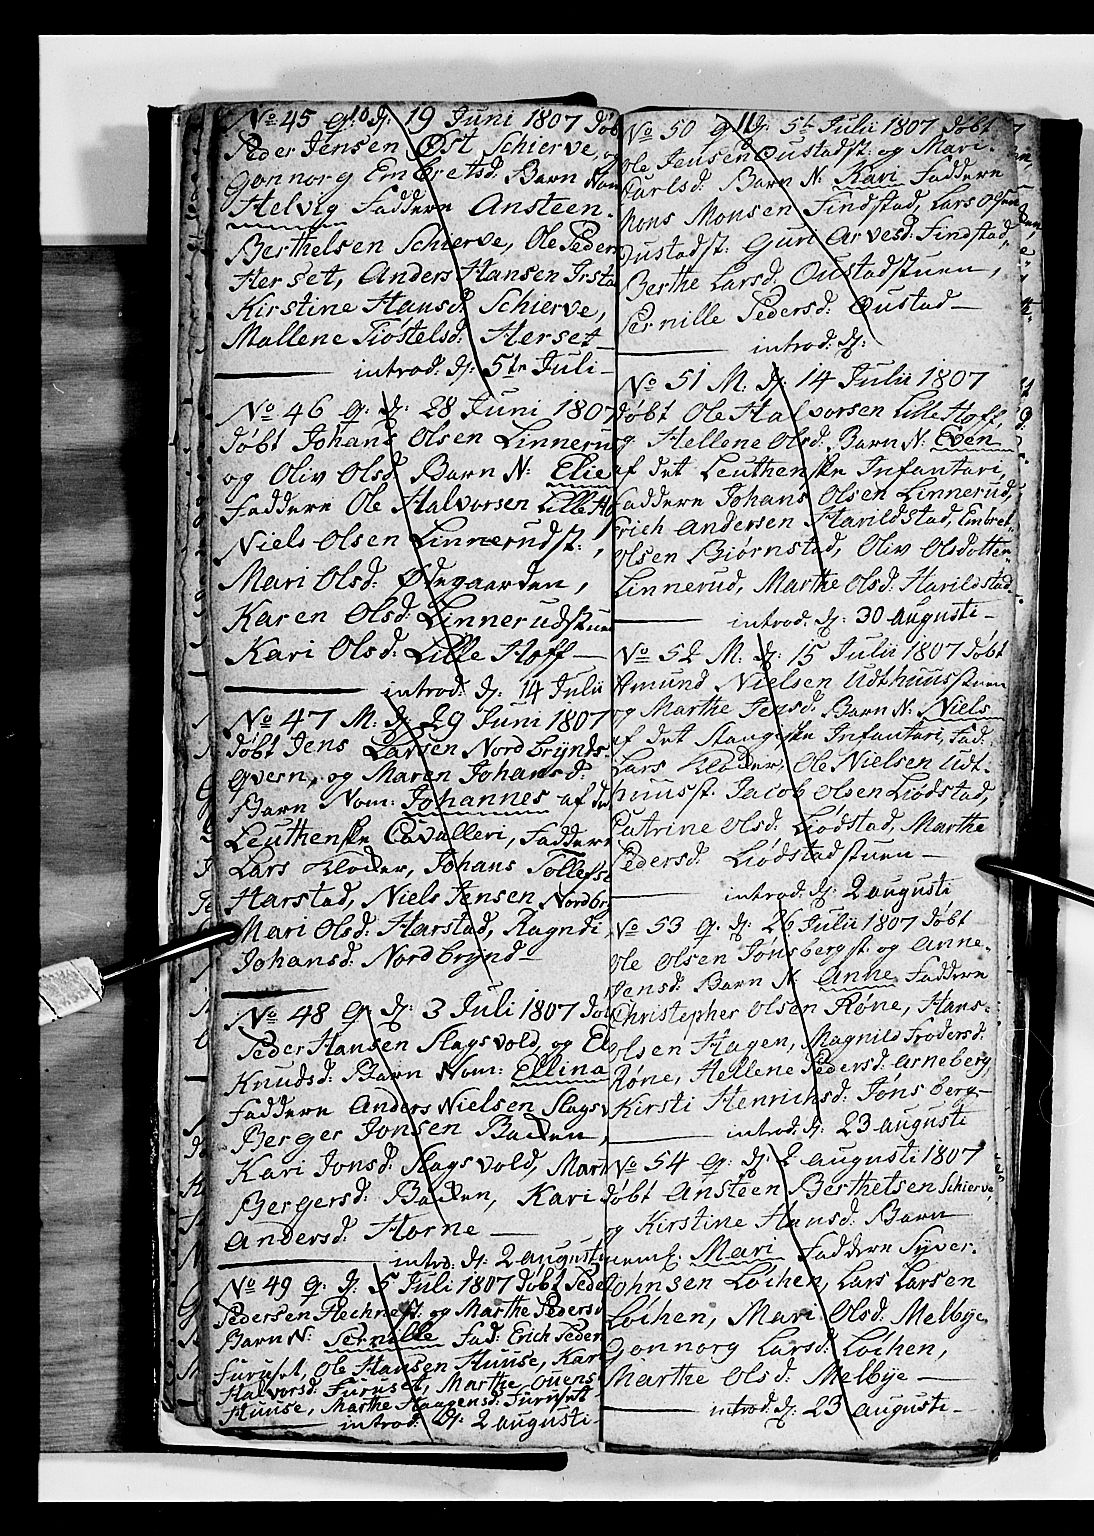 No 45 Q. d. 19 Juni 1807 Døb
Peder Jensen Øst Schierve, og
Gonnorg Embretsd. Barn Nom
Helvig Faddere Ansteen
Berthelsen Schierve, Ole Peders
Herset, Anders Hansen Irsta
Kirstine Hansd. Schierve,
Mallene Kiøstelsd: Herset
introd: d: 5te Juli
No 46 Q. d. 28 Juni 1807
Døbt Johans Olsen Linnerud
og Oliv Olsd Barn N: Elie
Faddere Ole Halvorsen Lille Ho
Niels Olsen Linnerudst:,
Mari Olsd: Ødegaarden,
Karen Olsd: Linnerudstuen
Kari Olsd: Lille Hoff
introd. d. 14 Julii
No 47 M. d. 29 Juni 1807
Døbt Jens Larsen Nordbrynds-
qvern, og Maren Johansd:
Barn Nom: Johannes af det
Leuthenske Cavalleri, Faddere
Lars Kloder, Johans Tollefse
Harstad, Niels Jensen Nordbr
Mari Olsd: Harstad, Ragndi
Johansd: Nordbrynd
No 48 Q. d. 3 Juli 1807 Døb
Peder Hansen Slagsvold, og El
Knudsd: Barn Nom: Ellina
Faddere Anders Nielsen Slagsv
Berger Jonsen Backen,
Kari Jonsd: Slagsvold, Mari
Bergersd: Backen, Kari
Andersd: Horne
introd. d. 2 augusti
No 49 Q. d. 5 Juli 1807 Døbt Peder
Pedersen Hechnest. og Marthe Pedersd
Barn N: Pernille Fad: Erich Peder
Furuset, Ole Hansen Huuse, Kari
Halvorsd: Furuset, Marthe Ouens
Huuse, Marthe Haagensd: Furuset
introd. d: 2 augusti
11
No 50 Q d. 5te Julii 1807 Døbt
Ole Jensen Oustadst: og Mari
Carlsd: Barn N: Kari Faddere
Mons Monsen Findstad, Lars Olsen
Oustadst: Guri Arvesd: Findstad
Berthe Larsd: Oustadstuen,
Pernille Pedersd: Oustad
introd: d:
No 51 M. d. 14 Julii 1807
Døbt Ole Halvorsen Lille Hoff,
og Hellene Olsd: Barn N: Even
af det Leuthenske Infanteri,
Faddere Johans Olsen Linnerud,
Erich Andersen Harildstad, Embret
Olsen Biørnstad, Oliv Olsdotter
Linnerud, Marthe Olsd: Harildstad
introd. d: 30 augusti
No 52 M. d: 15 Julii 1807 Døbt
Amund Nielsen Udthuusstuen
og Marthe Jensd: Barn N: Niels
af det Stangeske Infanteri, Fad:
Lars Kloder, Ole Nielsen Udt-
huusst: Jacob Olsen Liødstad,
Catrine Olsd: Liødstad, Marthe
Pedersd: Liødstadstuen
introd. d: 2 augusti
No 53 Q. d. 26 Julii 1807 Døbt
Ole Olsen Jønsbergst: og Anne
Jensd: Barn N: Anne Faddere
Christopher Olsen Røne, Hans
Olsen Hagen, Magnild Frodersd:
Røne, Hellene Pedersd: Arneberg
Kirsti Henrichsd: Jonsberg
introd. d: 23 augusti
No 54 Q. d: 2 augusti 1807
Døbt Ansteen Berthelsen Schierve
og Kirstine Hansd: Barn
nemf. Mari Faddere Syver
Johnsen Løchen, Lars Larsen
Løchen, Mari Olsd: Melbye
Gonnorg Larsd: Løchen,
Marthe Olsd: Melbye
introd. d: 23 augusti